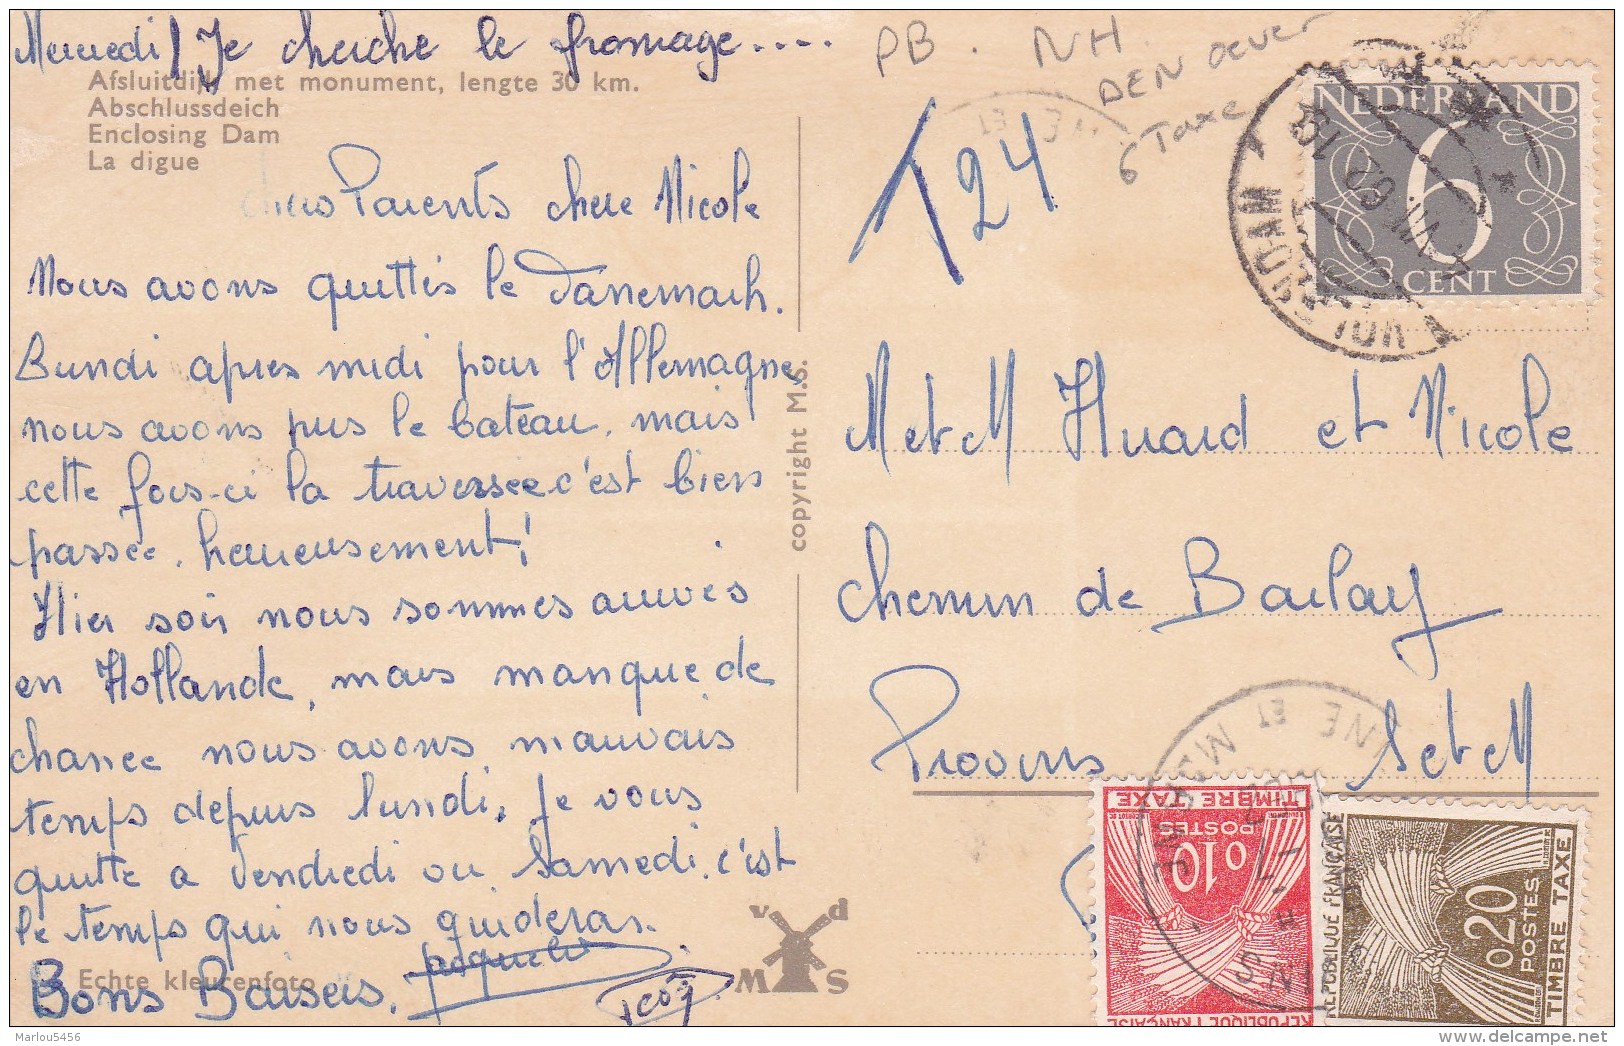 Mercredi / Je cherche le fromage....
Afsluitdijk met monument, lengte 30 km.
Abschlussdeich
Enclosing Dam
La digue
chers Parents chere Nicole
Nous avons quittés le Danemark.
Lundi apres midi pour l'Allemagne,
nous avons pris le bateau, mais
cette fois-ci la traversée c'est bien
passée, heureusement!
Hier soir nous sommes arrivés
en Hollande, mais manque de
chance nous avons mauvais
temps depuis lundi, je vous
quitte a Vendredi ou Samedi, c'est
le temps qui nous guideras.
Bons Baisers.
Echte kleurenfoto
v d
M S
copyright M.S.
PB. NH
DEN Oever
6 Taxe
T 24
NEDERLAND
6
CENT
M et M Huard et Nicole
chemin de
Provins S et M
NE ET M
TIMBRE TAXE
POSTES
0,10
REPUBLIQUE FRANÇAISE
REPUBLIQUE FRANÇAISE
0,20
POSTES
TIMBRE TAXE
Marlou5456
www.delcampe.net